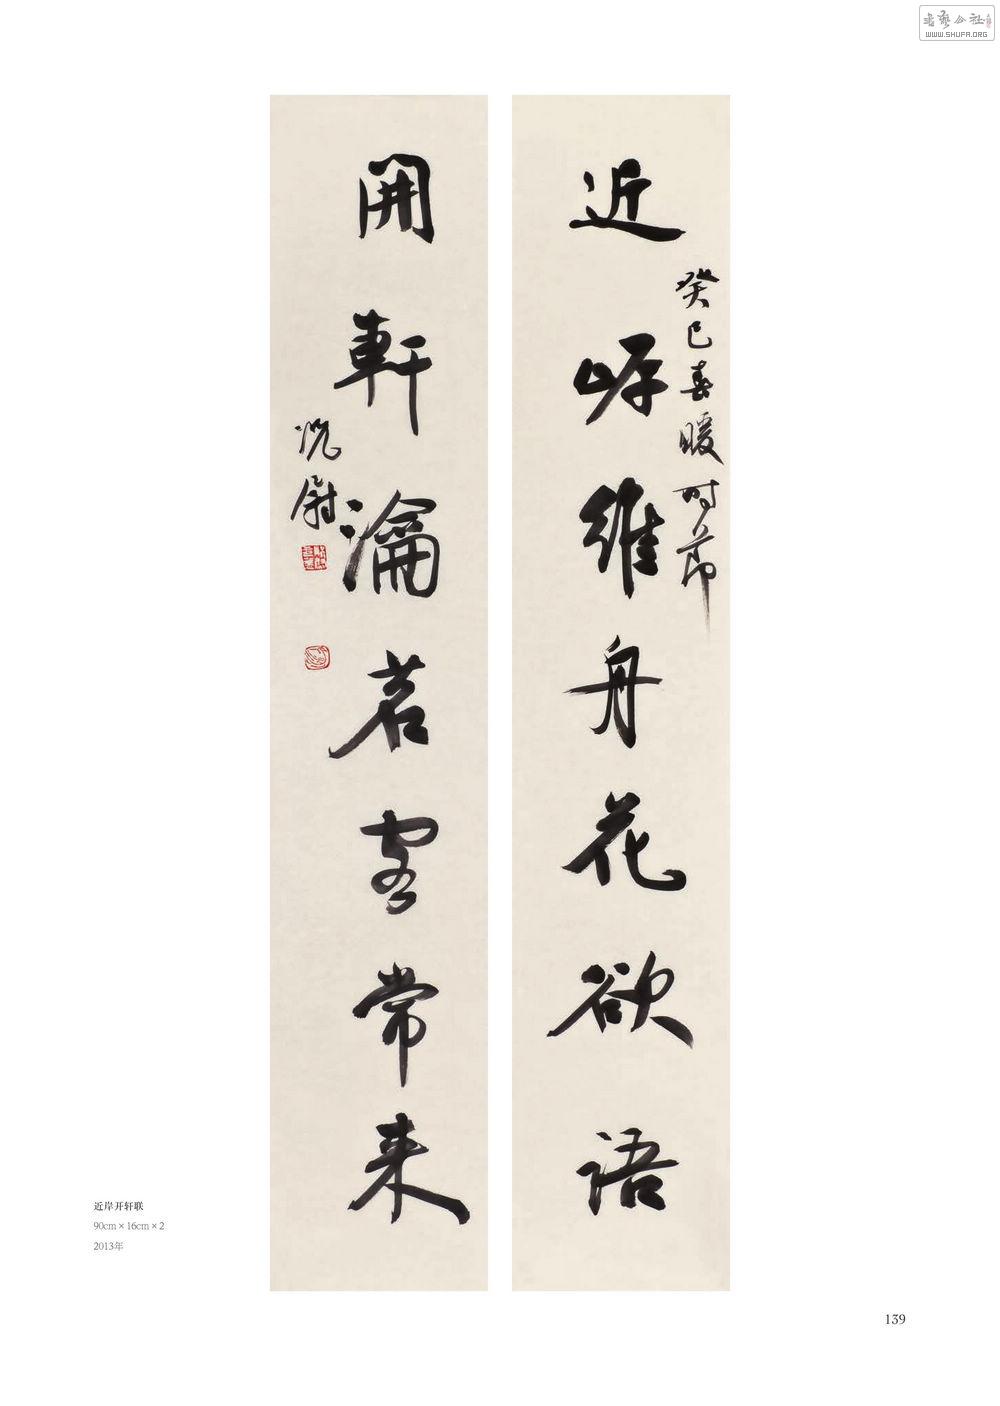 近岸維舟花欲语
癸巳春暖时节
開軒瀹茗客常来
沈尉
近岸开轩联
90cm×16cm×2
2013年
139
书艺公社
WWW.SHUFA.ORG